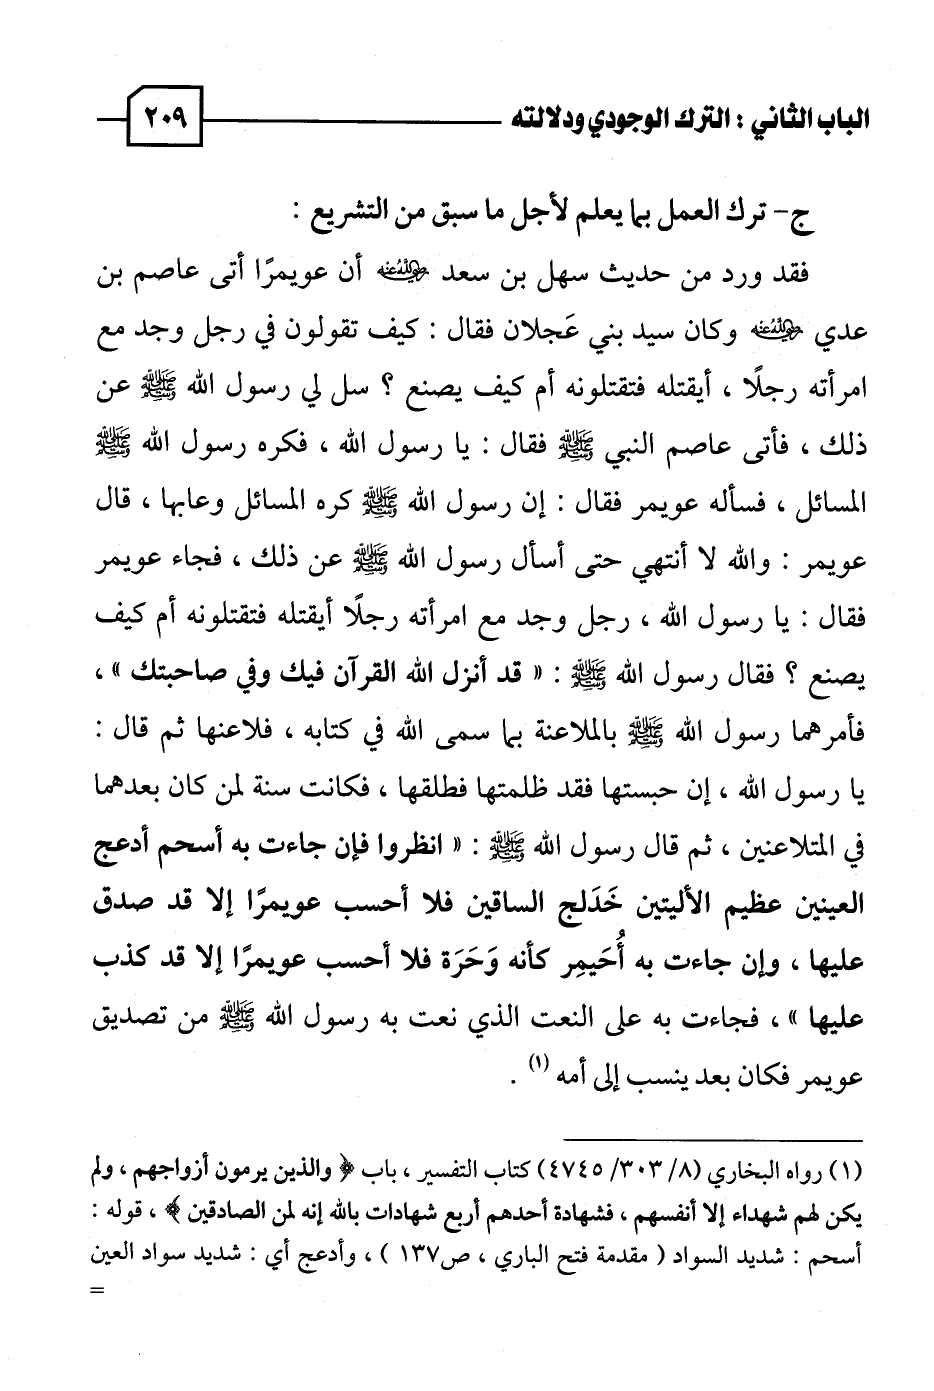 الباب الثاني : الترك الوجودي ودلالته ٢٠٩
ج- ترك العمل بما يعلم لأجل ما سبق من التشريع :
فقد ورد من حديث سهل بن سعد رضي الله عنه أن عويمرًا أتى عاصم بن
عدي رضي الله عنه وكان سيد بني عَجلان فقال : كيف تقولون في رجل وجد مع
امرأته رجلًا ، أيقتله فتقتلونه أم كيف يصنع ؟ سل لي رسول الله ﷺ عن
ذلك ، فأتى عاصم النبي ﷺ فقال : يا رسول الله ، فكره رسول الله ﷺ
المسائل ، فسأله عويمر فقال : إن رسول الله ﷺ كره المسائل وعابها ، قال
عويمر : والله لا أنتهي حتى أسأل رسول الله ﷺ عن ذلك ، فجاء عويمر
فقال : يا رسول الله ، رجل وجد مع امرأته رجلًا أيقتله فتقتلونه أم كيف
يصنع ؟ فقال رسول الله ﷺ : « قد أنزل الله القرآن فيك وفي صاحبتك » ،
فأمرهما رسول الله ﷺ بالملاعنة بما سمى الله في كتابه ، فلاعنها ثم قال :
يا رسول الله ، إن حبستها فقد ظلمتها فطلقها ، فكانت سنة لمن كان بعدهما
في المتلاعنين ، ثم قال رسول الله ﷺ : « انظروا فإن جاءت به أسحم أدعج
العينين عظيم الأليتين خَدَلج الساقين فلا أحسب عويمرًا إلا قد صدق
عليها ، وإن جاءت به أُحَيمِر كأنه وَحَرَة فلا أحسب عويمرًا إلا قد كذب
عليها » ، فجاءت به على النعت الذي نعت به رسول الله ﷺ من تصديق
عويمر فكان بعد ينسب إلى أمه (١) .
(١) رواه البخاري (٨/ ٣٠٣/ ٤٧٤٥) كتاب التفسير ، باب ﴿ والذين يرمون أزواجهم ، ولم
يكن لهم شهداء إلا أنفسهم ، فشهادة أحدهم أربع شهادات بالله إنه لمن الصادقين ﴾ ، قوله :
أسحم : شديد السواد ( مقدمة فتح الباري ، ص١٣٧ ) ، وأدعج أي : شديد سواد العين
=